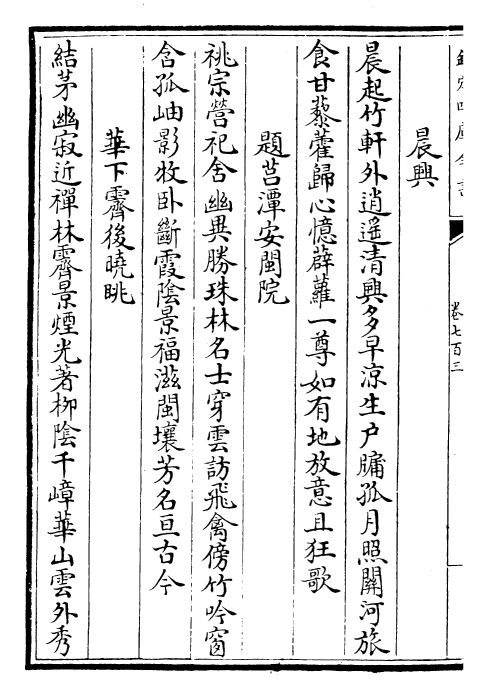 欽定四庫全書
卷七百三
晨興
晨起竹軒外逍遙清興多早涼生户牖孤月照關河旅
食甘藜藿歸心憶薜蘿一尊如有地放意且狂歌
題莒潭安閩院
祧宗營祀舍幽異勝珠林名士穿雲訪飛禽傍竹吟窗
含孤岫影牧卧斷霞隂景福滋閩壤芳名亘古今
華下霽後曉眺
結茅幽寂近禪林霽景煙光著柳隂千嶂華山雲外秀